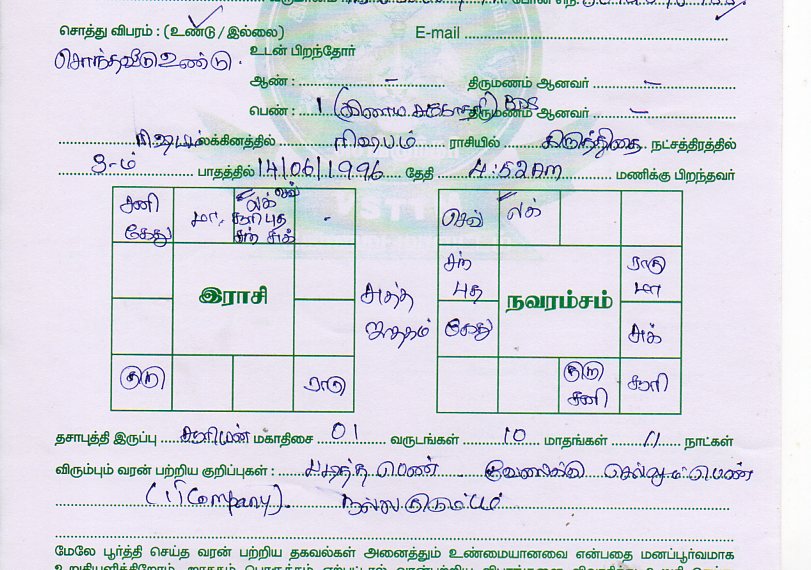 சொத்து விபரம் : (உண்டு / இல்லை) E-mail
சொந்தவீடு உண்டு. உடன் பிறந்தோர்
ஆண் : - திருமணம் ஆனவர் -
பெண் : 1 திருமணம் ஆனவர் -
ரிஷபம் லக்கினத்தில் ரிஷபம் ராசியில் கிருத்திகை நட்சத்திரத்தில்
3-ம் பாதத்தில் 14/06/1996 தேதி 4:52 Am மணிக்கு பிறந்தவர்
சனி கேது மா, லக் செவ் சூரி புத சந் சுக் -
செவ் லக்
இராசி
சந் புத ராகு மா
நவரம்சம்
கேது சுக்
குரு ராகு
குரு சனி சூரி
தசாபுத்தி இருப்பு சூரியன் மகாதிசை 01 வருடங்கள் 10 மாதங்கள் 11 நாட்கள்
விரும்பும் வரன் பற்றிய குறிப்புகள் : படித்த பெண் வேலைக்கு செல்லும் பெண்
(IT Company). நல்ல குடும்பம்
மேலே பூர்த்தி செய்த வரன் பற்றிய தகவல்கள் அனைத்தும் உண்மையானவை என்பதை மனப்பூர்வமாக